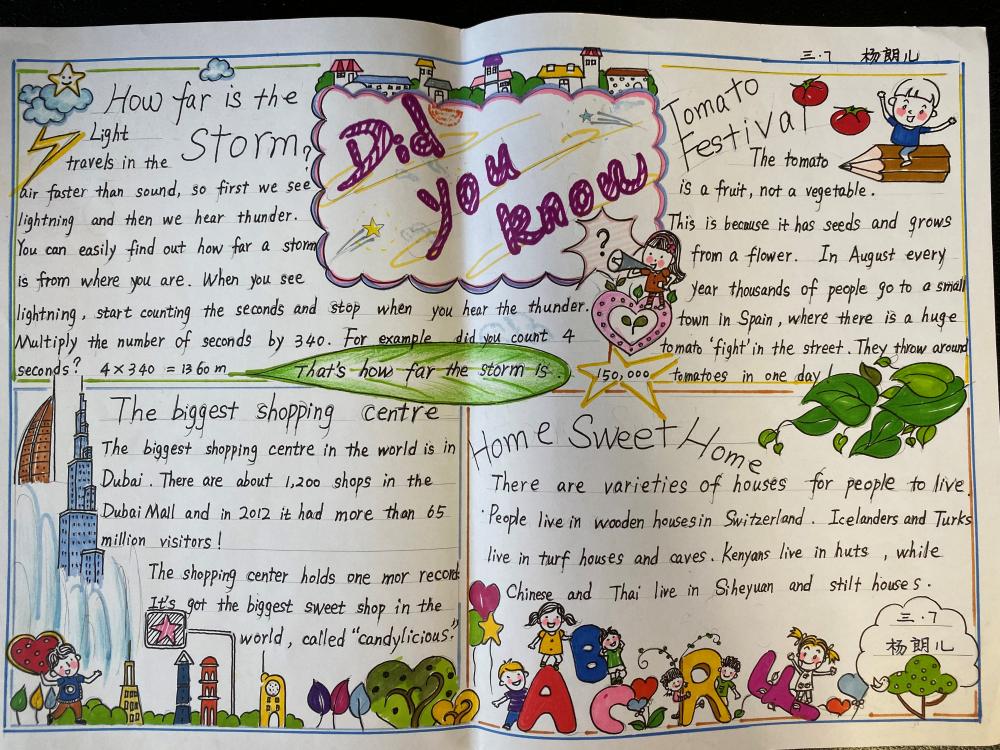 三·7 杨朗儿
Did
you
know
?
How far is the
Storm?
Light
travels in the
air faster than sound, so first we see
lightning and then we hear thunder.
You can easily find out how far a storm
is from where you are. When you see
lightning, start counting the seconds and stop when you hear the thunder.
Multiply the number of seconds by 340. For example did you count 4
seconds? 4×340 = 1360m
That's how far the storm is.
Tomato
Festival
The tomato
is a fruit, not a vegetable.
This is because it has seeds and grows
from a flower. In August every
year thousands of people go to a small
town in Spain, where there is a huge
tomato 'fight' in the street. They throw around
150,000 tomatoes in one day!
The biggest shopping centre
The biggest shopping centre in the world is in
Dubai. There are about 1,200 shops in the
Dubai Mall and in 2012 it had more than 65
million visitors!
The shopping center holds one mor record
It's got the biggest sweet shop in the
world, called "candylicious."
Home Sweet Home
There are varieties of houses for people to live.
People live in wooden houses in Switzerland. Icelanders and Turks
live in turf houses and caves. Kenyans live in huts, while
Chinese and Thai live in Siheyuan and stilt houses.
三·7
杨朗儿
A B C R L